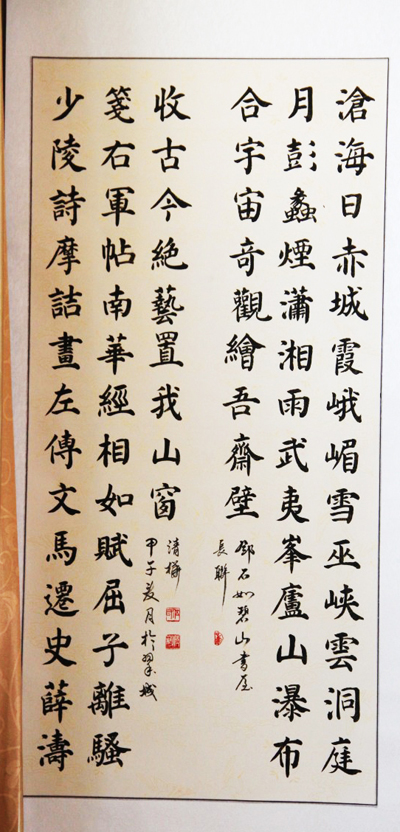 滄海日赤城霞峨嵋雪巫峽雲洞庭
月彭蠡煙瀟湘雨武夷峯廬山瀑布
合宇宙奇觀繪吾齋壁
鄧石如碧山書屋
長聯
少陵詩摩詰畫左傳文馬遷史薛濤
箋右軍帖南華經相如賦屈子離騷
收古今絶藝置我山窗
甲子月於翠城
清